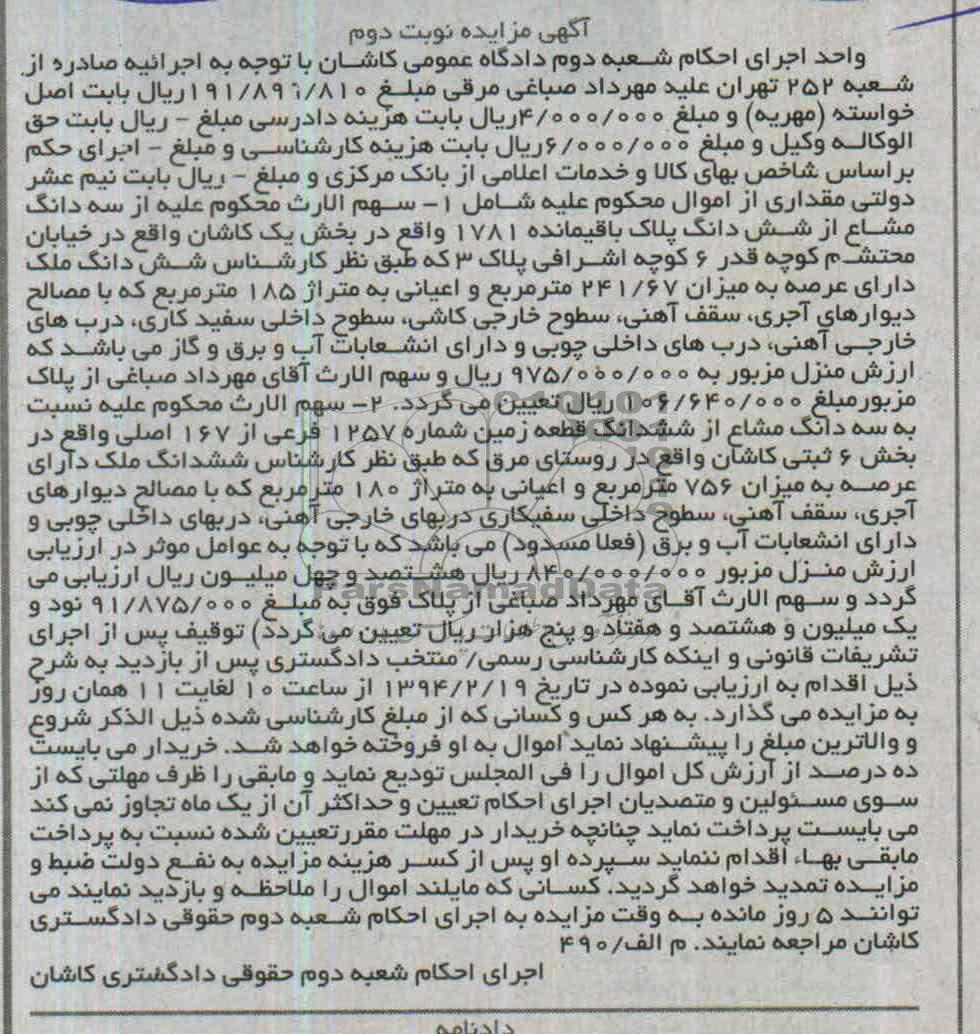 آگهی مزایده نوبت دوم
واحد اجرای احکام شعبه دوم دادگاه عمومی کاشان با توجه به اجرائیه صادره از
شعبه ۲۵۲ تهران علیه مهرداد صباغی مرقی مبلغ ۱۹۱/۸۹۶/۸۱۰ریال بابت اصل
خواسته (مهریه) و مبلغ ۴/۰۰۰/۰۰۰ریال بابت هزینه دادرسی مبلغ - ریال بابت حق
الوکاله وکیل و مبلغ ۶/۰۰۰/۰۰۰ریال بابت هزینه کارشناسی و مبلغ - اجرای حکم
براساس شاخص بهای کالا و خدمات اعلامی از بانک مرکزی و مبلغ - ریال بابت نیم عشر
دولتی مقداری از اموال محکوم علیه شامل ۱- سهم الارث محکوم علیه از سه دانگ
مشاع از شش دانگ پلاک باقیمانده ۱۷۸۱ واقع در بخش یک کاشان واقع در خیابان
محتشم کوچه قدر ۶ کوچه اشرافی پلاک ۳ که طبق نظر کارشناس شش دانگ ملک
دارای عرصه به میزان ۲۴۱/۶۷ مترمربع و اعیانی به متراژ ۱۸۵ مترمربع که با مصالح
دیوارهای آجری، سقف آهنی، سطوح خارجی کاشی، سطوح داخلی سفید کاری، درب های
خارجی آهنی، درب های داخلی چوبی و دارای انشعابات آب و برق و گاز می باشد که
ارزش منزل مزبور به ۹۷۵/۰۰۰/۰۰۰ ریال و سهم الارث آقای مهرداد صباغی از پلاک
مزبورمبلغ ۱۰۶/۶۴۰/۰۰۰ریال تعیین می گردد. ۲- سهم الارث محکوم علیه نسبت
به سه دانگ مشاع از ششدانگ قطعه زمین شماره ۱۲۵۷ فرعی از ۱۶۷ اصلی واقع در
بخش ۶ ثبتی کاشان واقع در روستای مرق که طبق نظر کارشناس ششدانگ ملک دارای
عرصه به میزان ۷۵۶ مترمربع و اعیانی به متراژ ۱۸۰ مترمربع که با مصالح دیوارهای
آجری، سقف آهنی، سطوح داخلی سفیکاری دربهای خارجی آهنی، دربهای داخلی چوبی و
دارای انشعابات آب و برق (فعلا مسدود) می باشد که با توجه به عوامل موثر در ارزیابی
ارزش منزل مزبور ۸۴۰/۰۰۰/۰۰۰ ریال هشتصد و چهل میلیون ریال ارزیابی می
گردد و سهم الارث آقای مهرداد صباغی از پلاک فوق به مبلغ ۹۱/۸۷۵/۰۰۰ نود و
یک میلیون و هشتصد و هفتاد و پنج هزار ریال تعیین می گردد) توقیف پس از اجرای
تشریفات قانونی و اینکه کارشناسی رسمی/ منتخب دادگستری پس از بازدید به شرح
ذیل اقدام به ارزیابی نموده در تاریخ ۱۳۹۴/۲/۱۹ از ساعت ۱۰ لغایت ۱۱ همان روز
به مزایده می گذارد. به هر کس و کسانی که از مبلغ کارشناسی شده ذیل الذکر شروع
و والاترین مبلغ را پیشنهاد نماید اموال به او فروخته خواهد شد. خریدار می بایست
ده درصد از ارزش کل اموال را فی المجلس تودیع نماید و مابقی را ظرف مهلتی که از
سوی مسئولین و متصدیان اجرای احکام تعیین و حداکثر آن از یک ماه تجاوز نمی کند
می بایست پرداخت نماید چنانچه خریدار در مهلت مقررتعیین شده نسبت به پرداخت
مابقی بهاء اقدام ننماید سپرده او پس از کسر هزینه مزایده به نفع دولت ضبط و
مزایده تمدید خواهد گردید. کسانی که مایلند اموال را ملاحظه و بازدید نمایند می
توانند ۵ روز مانده به وقت مزایده به اجرای احکام شعبه دوم حقوقی دادگستری
کاشان مراجعه نمایند. م الف/۴۹۰
اجرای احکام شعبه دوم حقوقی دادگستری کاشان
دادنامه
ParsNamadData